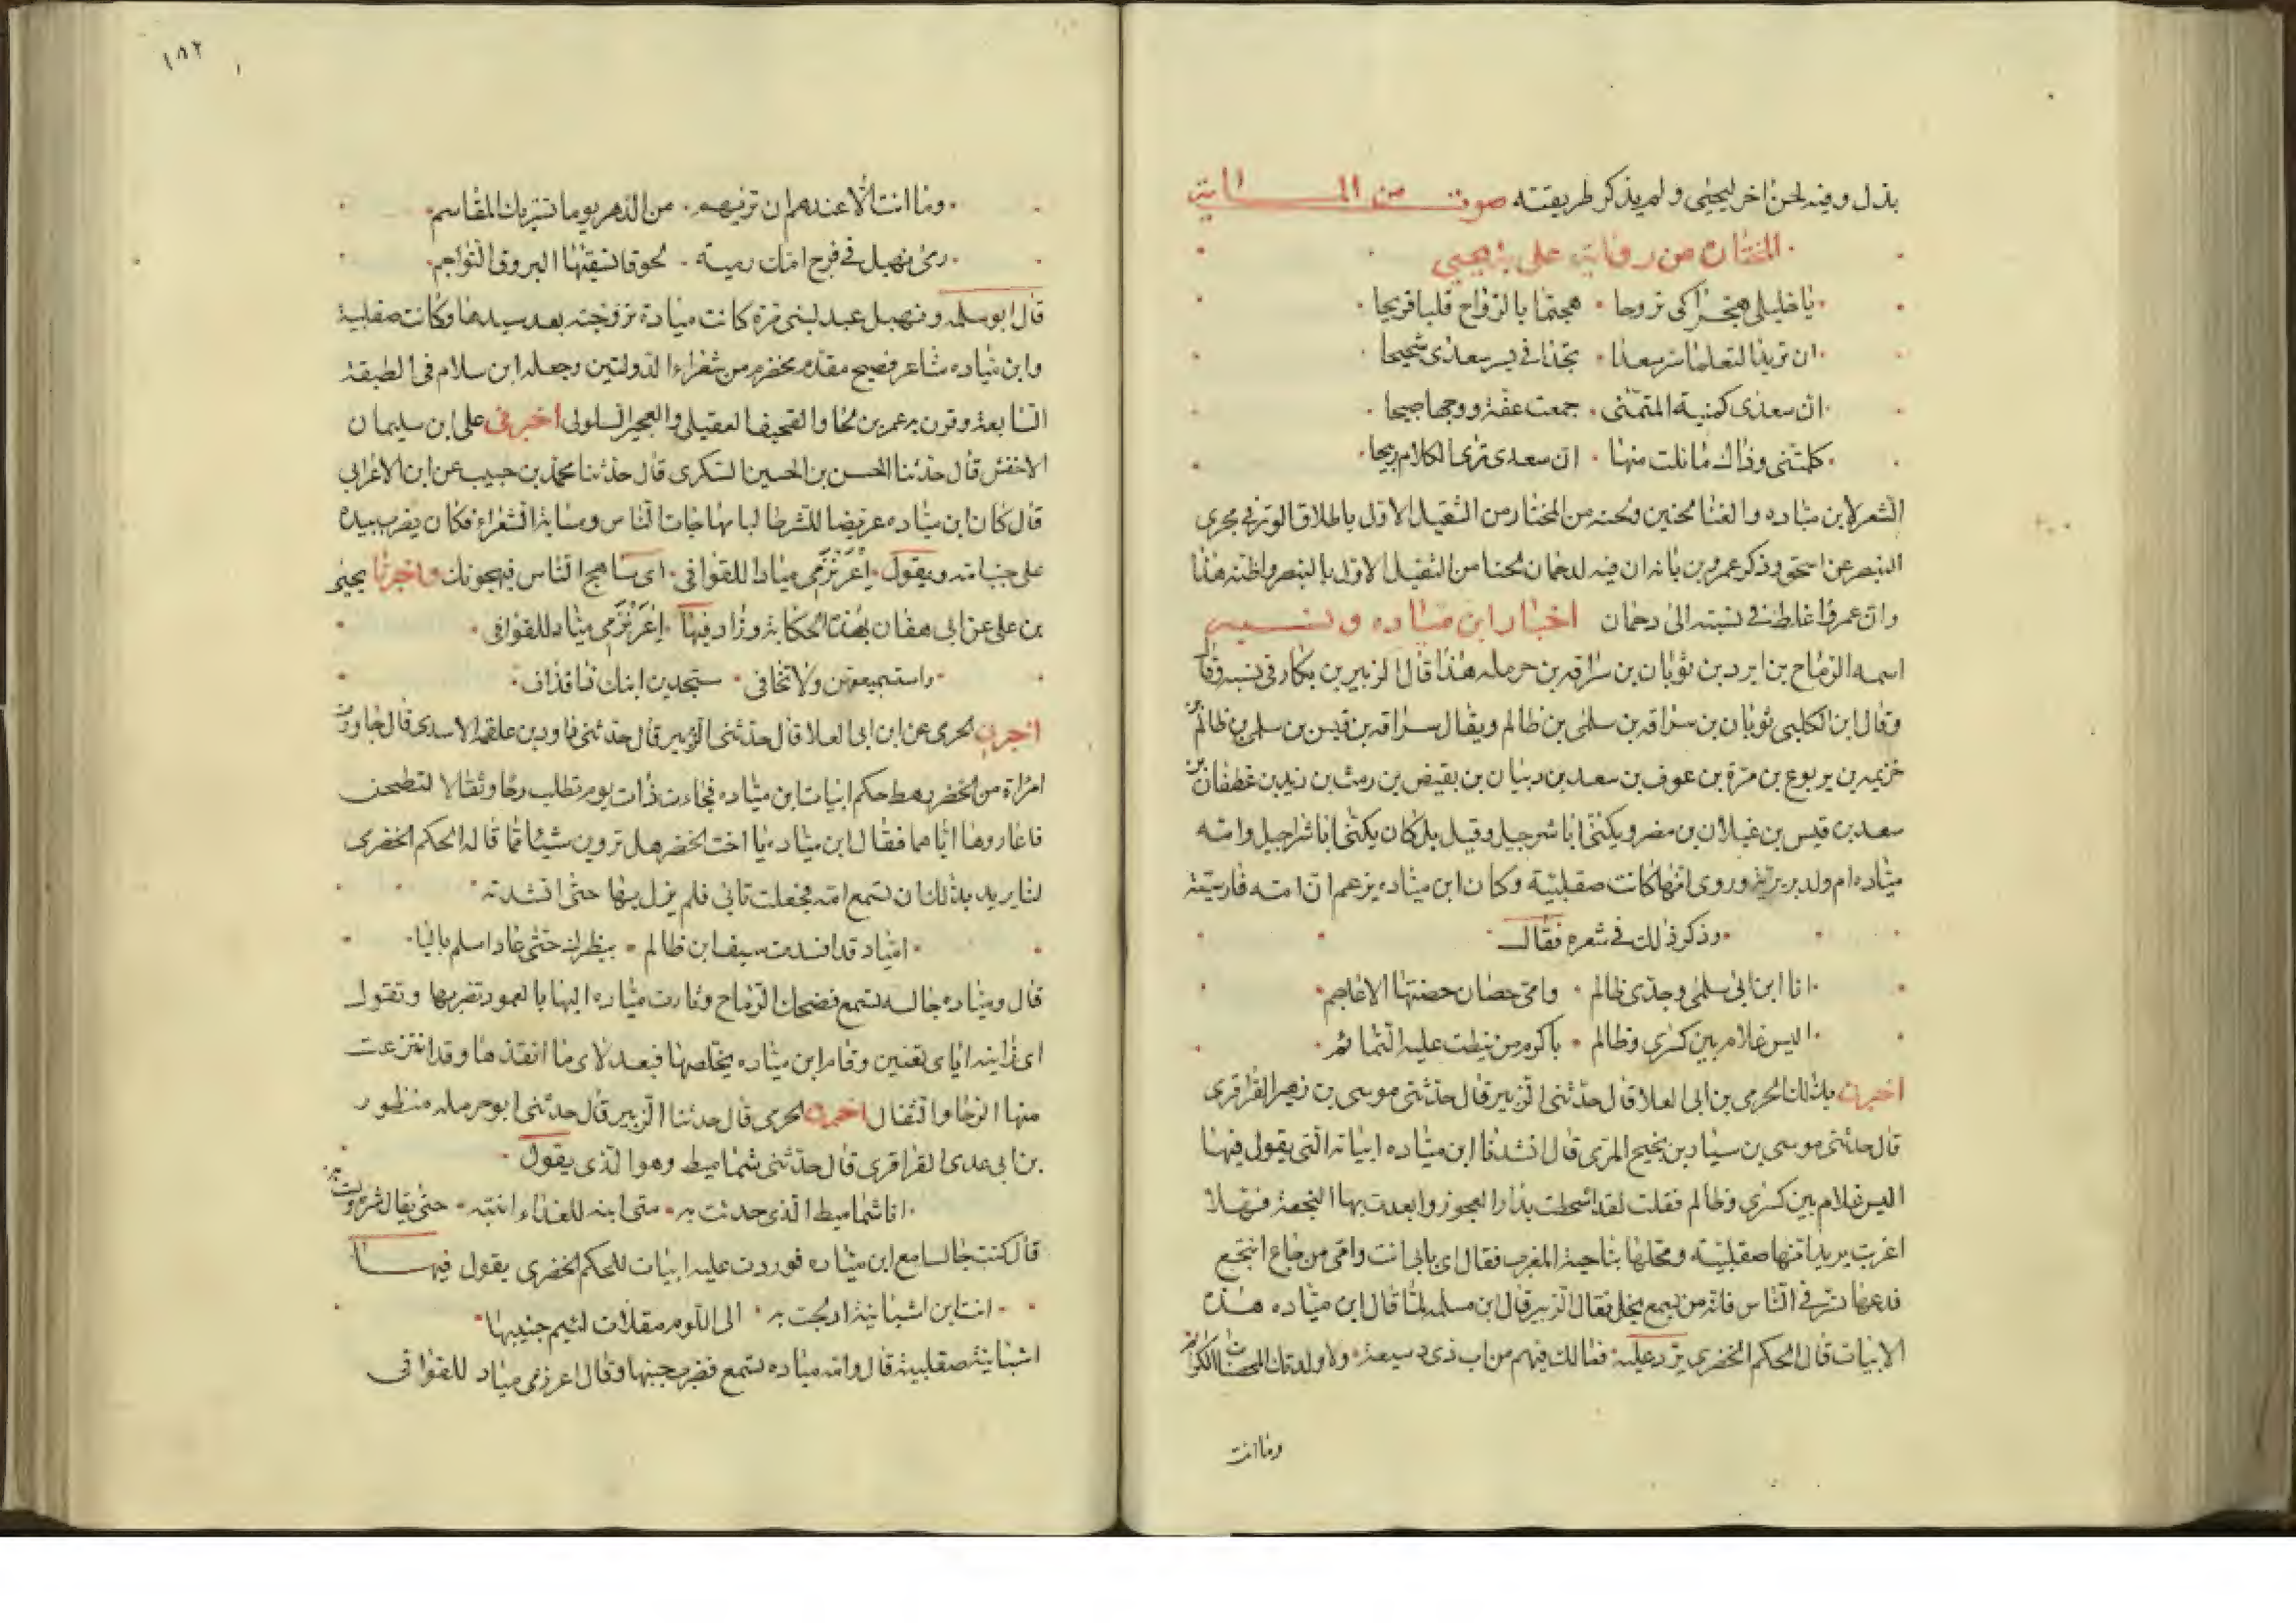 بذل وفيه لحن اخر ليحيى ولم يذكر طريقته صوت من الماية
المختاره من رواية على بن يحيى
يا خليلى هجرا كى تروحا هجتما بالرواح قلبا قريحا
ان تريغا لتعلما سر سعدا تجدانى بسر سعدى شحيحا
ان سعدى كمنية المتمنى جمعت عفة ووجها صبيحا
كلمتنى وذاك ما نلت منها ان سعدى ترى الكلام ربيحا
الشعر لابن مياده والغنا لحنين ولحنه من المختار من الثقيل الاول باطلاق الوتر فى مجرى
البنصر عن اسحق وذكر عمرو بن بانه ان فيه لدحمان لحنا من الثقيل الاول بالبنصر واظنه هذا
وان عمروا غلط فى نسبته الى دحمان اخبار ابن مياده ونسبه
اسمه الرماح بن ابرد بن ثوبان بن سراقه بن حرمله هذا قال الزبير بن بكار فى نسبه وقال
وقال ابن الكلبى ثوبان بن سراقه بن سلمى بن ظالم ويقال سراقه بن قيس بن سلمى بن ظالم بن
خزيمه بن يربوع بن مرة بن عوف بن سعد بن دبيان بن بغيض بن ريث بن زيد بن غطفان بن
سعد بن قيس بن غيلان بن مضر ويكنى ابا شرحبيل وقيل بل كان يكنى ابا شراحيل وامه
مياده ام ولد بربرية وروى انها كانت صقلبية وكان ابن مياده يزعم ان امه فارسية
وذكر ذلك فى شعره فقال
انا ابن ابى سلمى وجدى ظالم وامى حصان حصنتها الاعاجم
اليس غلام بين كسرى وظالم باكرم من نيطت عليه التمائم
اخبرنى بذلك الحرمى بن ابى العلا قال حدثنى الزبير قال حدثنى موسى بن زهير الفزارى
قال حدثنى موسى بن سيار بن نجيح المزى قال انشدنا ابن مياده ابياته التى يقول فيها
اليس غلام بين كسرى وظالم فقلت لقد اشحطت بدار العجوز وابعدت بها النجعة فهلا
اغربت يريد انها صقلبية ومحلها بناحية المغرب فقال اى بابى انت وامى من جاع انتجع
فدعها تسر فى الناس فانه من يسمع يخل فقال الزبير قال ابن مسلمه لما قال ابن مياده هذه
الابيات قال الحكم الخضرى يرد عليه فما لك فيهم من اب ذى دسيعة ولا ولدتك المحصنات الكرائم
وما انت
١٨٢
وما انت الا عندهم ان ترنهم من الدهر يوما تستربك المقاسم
رمى نهبل فى فرج امك رمية بحوقا تسقنها البروق التواجم
قال ابو سلمه ونهبل عبد لبنى مرة كانت مياده تزوجته بعد سيدها وكانت صقلبية
وابن مياده شاعر فصيح مقدم مخضرم من شعراء الدولتين وجعله ابن سلام فى الطبقة
السابعة وقرن به عمر بن لجا والقحيف العقيلى والعجير السلولى اخبرنى على ابن سليمان
الاخفش قال حدثنا الحسن بن الحسين السكرى قال حدثنا محمد بن حبيب عن ابن الاعرابى
قال كان ابن مياده عريضا للشر طالبا مهاجات الناس ومسابة الشعراء فكان يضرب بيده
على جنب امه ويقول اعرنزمى مياد للقوافى اى ساهجو الناس فيهجونك واخبرنا يحيى
بن على عن ابى هفان بهذه الحكاية وزاد فيها اعرنزمى مياد للقوافى
واستسمعيهن ولا تخافى ستجدين ابنك ذا قذاف
اخبرنى الحرمى عن ابن ابى العلا قال حدثنى الزبير قال حدثنى داود بن علقمه الاسدى قال جاورت
امراة من الخضر رهط حكم ابيات ابن مياده فجاءت ذات يوم تطلب رحا وثفالا لتطحن
فاعاروها اياهما فقال ابن مياده يا اخت الخضر هل تروين شيئا مما قاله الحكم الخضرى
لنا يريد بذلك ان تسمع امه فجعلت تابى فلم يزل بها حتى انشدته
امياد قد افسدت سيف ابن ظالم ببظرك حتى عاد اسلم باليا
قال ومياده جالسه تسمع فضحك الرماح وثارت مياده اليها بالعمود تضربها وتقول
اى زانيه اياى تعنين وقام ابن مياده يخلصها فبعد لاى ما انقذها وقد انتزعت
منها الرحا والثفال اخبرنى الحرمى قال حدثنا الزبير قال حدثنى ابو حرمله منظور
بن ابى عدى الفزارى قال حدثنى شماميط وهوا الذى يقول
انا شماميط الذى حدثت به متى انبه للغداء انتبه حتى يقال شره ولست به
قال كنت جالسا مع ابن مياده فوردت عليه ابيات للحكم الخضرى يقول فيها
انت ابن اشبانية ادلجت به الى اللوم مقلات لئيم جنينها
اشبانية صقلبية قال وامه مياده تسمع فضرب جنبها وقال اعرنزمى مياد للقوافى